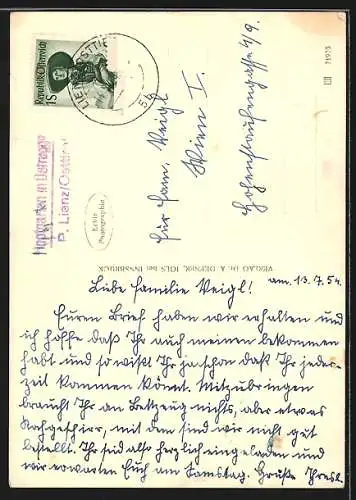 Republik Österreich
1 S
LIENZ OSTTIROL
54
Hopfgarten in Defreggen
P. Lienz/Osttirol
Echte
Photographie
VERLAG Dr. A. DEFNER, IGLS bei INNSBRUCK
für Fam. Veigl
Wien I.
Hohenstaufengasse 4/9.
am. 13.7.54.
Liebe Familie Veigl!
Euren Brief haben wir erhalten und
ich hoffe daß Ihr auch meinen bekommen
habt und so wißt Ihr ja schon daß Ihr jeder-
zeit kommen könnt. Mitzubringen
braucht Ihr an Bettzeug nichts, aber etwas
Kochgeschirr, mit dem sind wir nicht gut
bestellt. Ihr seid also herzlich eingeladen und
wir erwarten Euch am Samstag. Grüße Thresl.